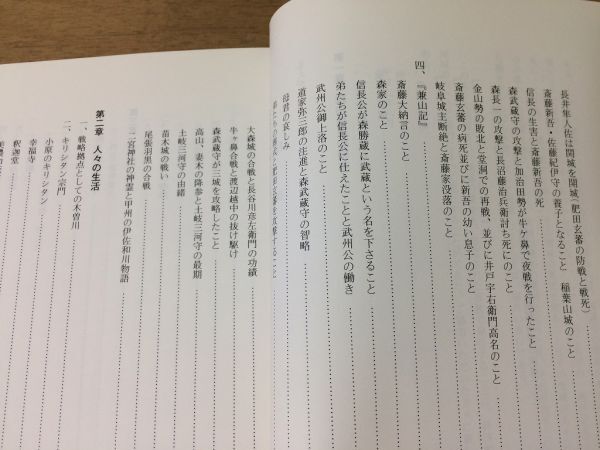 長井隼人佐は関城を開城(肥田玄蕃の防戦と戦死)
斎藤新吾・佐藤紀伊守の養子となること 稲葉山城のこと
信長の生害と斎藤新吾の死
森武蔵守の攻撃と加治田勢が牛ヶ鼻で夜戦を行ったこと
森長一の攻撃と長沼藤治兵衛討ち死にのこと
金山勢の敗北と堂洞での再戦、並びに井戸宇右衛門高名のこと
斎藤玄蕃の病死並びに新吾の幼い息子のこと
岐阜城主断絶と斎藤家没落のこと
四、『兼山記』
斎藤大納言のこと
森家のこと
信長公が森勝蔵に武蔵という名を下さること
弟たちが信長公に仕えたことと武州公の働き
武州公御上洛のこと
道家弥三郎の注進と森武蔵守の智略
母君の哀しみ
大森城の合戦と長谷川彦左衛門の功績
牛ヶ鼻合戦と渡辺越中の抜け駆け
森武蔵守が三城を攻略したこと
高山、妻木の降参と土岐三河守の最期
土岐三河守の由緒
苗木城の戦い
尾張羽黒の合戦
二宮神社の神霊と甲州の伊佐和川物語
第二章 人々の生活
一、戦略拠点としての木曽川
二、キリシタン宗門
小原のキリシタン
幸福寺
釈迦堂